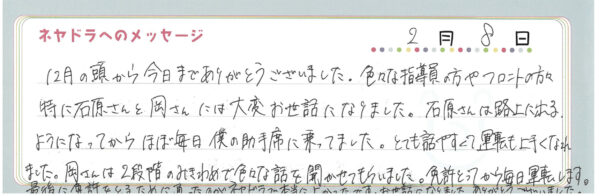 ネヤドラへのメッセージ
2月8日
12月の頭から今日までありがとうございました。色々な指導員の方やフロントの方々
特に石原さんと岡さんには大変お世話になりました。石原さんは路上に出る
ようになってからほぼ毎日僕の助手席に乗ってました。とても話やすくて運転も上手くなれ
ました。岡さんは2段階のみきわめで色々な話を聞かせてもらいました。免許とってから毎日運転します。
最後に免許をとるために通ったのがネヤドラで本当によかったです。お世話になりました。ありがとうございました。